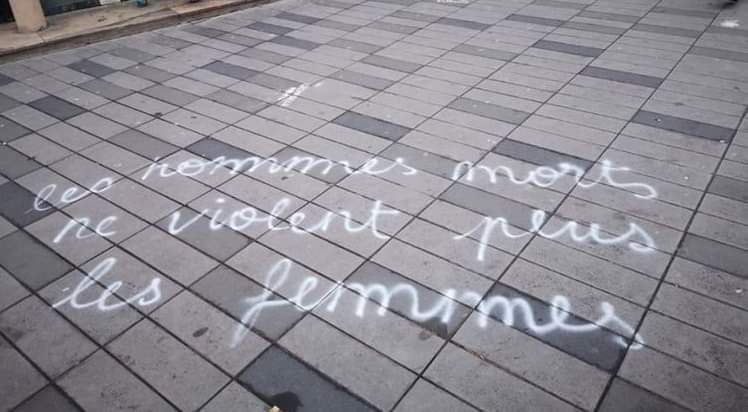 les hommes morts
ne violent plus
les femmes